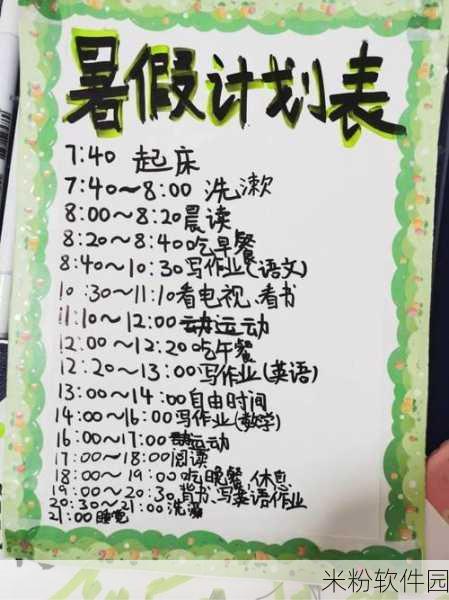 暑假计划表
7:40 起床
7:40～8:00 洗漱
8:00～8:20晨读
8:20～8:40吃早餐
8:40～10:30写作业(语文)
10:30～11:10看电视、看书
11:10～12:00 运动
12:00～12:20吃午餐
12:20～13:00写作业(英语)
13:00～14:00自由时间
14:00～16:00写作业(数学)
16:00～17:00运动
17:00～18:00阅读
18:00～19:00吃晚餐、休息
19:00～20:30背书、写英语作业
20:30～21:00洗澡
21:00睡觉
米粉软件园